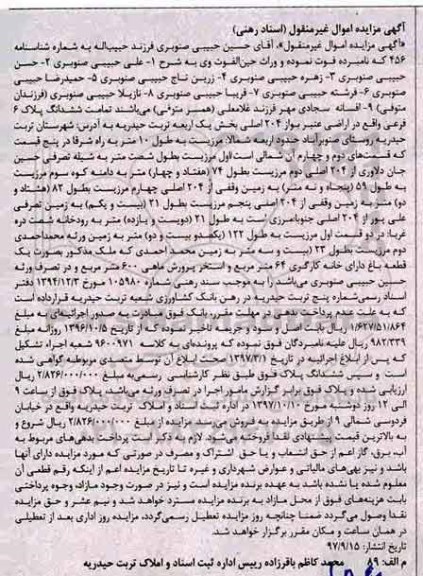 آگهی مزایده اموال غیرمنقول (اسناد رهنی)
«آگهی مزایده اموال غیرمنقول»، آقای حسین حبیبی صنوبری فرزند حبیب‌اله به شماره شناسنامه
۴۵۶ که نامبرده فوت نموده و وراث حین‌الفوت وی به شرح ۱- علی حبیبی صنوبری ۲- حسن
حبیبی صنوبری ۳- زهره حبیبی صنوبری ۴- زرین تاج حبیبی صنوبری ۵- حمیدرضا حبیبی
صنوبری ۶- فرشته حبیبی صنوبری ۷- فریبا حبیبی صنوبری ۸- نازیلا حبیبی صنوبری (فرزندان
متوفی) ۹- افسانه سجادی مهر فرزند غلامعلی (همسر متوفی) می‌باشند تمامت ششدانگ پلاک ۶
فرعی واقع در اراضی عنبر یواز ۲۰۴ اصلی بخش یک اربعه تربت حیدریه به آدرس: شهرستان تربت
حیدریه روستای صنوبرآباد حدود اربعه شمالا: مرزیست به طول ۱۰ متر به راه شرقا در پنج قسمت
که قسمت‌های دوم و چهارم آن شمالی است اول مرزیست بطول شصت متر به شیله تصرفی حسین
جان دلاوری از ۲۰۴ اصلی دوم مرزیست بطول ۷۴ (هفتاد و چهار) متر به دامنه کوه سوم مرزیست
به طول ۵۹ (پنجاه و نه متر) به زمین وقفی از ۲۰۴ اصلی چهارم مرزیست بطول ۸۲ (هشتاد و
دو) متر به زمین وقفی از ۲۰۴ اصلی پنجم مرزیست بطول ۲۱ (بیست و یکم) به زمین تصرفی
علی پور از ۲۰۴ اصلی جنوبا مرزی است به طول ۲۱ (دویست و یازده) متر به رودخانه شصت دره
غربا: در دو قسمت اول مرزیست به طول ۱۲۲ (یکصدو بیست و دو) متر به زمین ورثه محمداحمدی
دوم مرزیست بطول ۲۳ (بیست و سه متر به زمین محمد احمدی که ملک مذکور بصورت یک
قطعه باغ دارای خانه کارگری ۶۴ متر مربع و استخر پرورش ماهی ۶۰۰ متر مربع و در تصرف ورثه
حسین حبیبی صنوبری می‌باشد را به موجب سند رهنی شماره ۱۰۵۹۸۰ مورخ ۱۳۹۴/۱۲/۳ دفتر
اسناد رسمی شماره پنج تربت حیدریه در رهن بانک کشاورزی شعبه تربت حیدریه قرارداده است
که به علت عدم پرداخت بدهی در مهلت مقرر، بانک فوق مبادرت به صدور اجرائیه‌ای به مبلغ
۱/۶۲۷/۵۱/۸۶۴ ریال بابت اصل و سود و جریمه تاخیر نموده که از تاریخ ۱۳۹۶/۱۰/۵ روزانه مبلغ
۹۸۲/۳۳۹ ریال علیه نامبردگان فوق نموده که پرونده‌ای به کلاسه ۹۶۰۰۹۷۱ شعبه اجراء تشکیل
که پس از ابلاغ اجرائیه در تاریخ ۱۳۹۷/۳/۱ صحت ابلاغ آن توسط متصدی مربوطه گواهی شده
است و سپس ششدانگ پلاک فوق طبق نظر کارشناسی رسمی به مبلغ ۲/۸۲۶/۰۰۰/۰۰۰ ریال
ارزیابی شده و پلاک فوق برابر گزارش مامور اجرا در تصرف ورثه می‌باشد. پلاک فوق از ساعت ۹
الی ۱۲ روز دوشنبه مورخ ۱۳۹۷/۱۰/۱۰ در اداره ثبت اسناد و املاک تربت حیدریه واقع در خیابان
فردوسی شمالی ۱۹ از طریق مزایده به فروش می‌رسد مزایده از مبلغ ۲/۸۲۶/۰۰۰/۰۰۰ ریال شروع و
به بالاترین قیمت پیشنهادی نقدا فروخته می‌شود. لازم به ذکر است پرداخت بدهی‌های مربوط به
آب، برق، گاز اعم از حق انشعاب و یا حق اشتراک و مصرف در صورتی که مورد مزایده دارای آنها
باشد و نیز بهی‌های مالیاتی و عوارض شهرداری و غیره تا تاریخ مزایده اعم از اینکه رقم قطعی آن
معلوم شده یا نشده باشد به عهده برنده مزایده است و نیز در صورت وجود مازاد، وجوه پرداختی
بابت هزینه‌های فوق از محل مازاد به برنده مزایده مسترد خواهد شد و نیم عشر و حق مزایده
نقدا وصول می‌گردد ضمنا چنانچه روز مزایده تعطیل رسمی‌گردد، مزایده روز اداری بعد از تعطیلی
در همان ساعت و مکان مقرر برگزار خواهد شد.
تاریخ انتشار: ۹۷/۹/۱۵
م الف: ۸۹ محمد کاظم باقرزاده رییس اداره ثبت اسناد و املاک تربت حیدریه